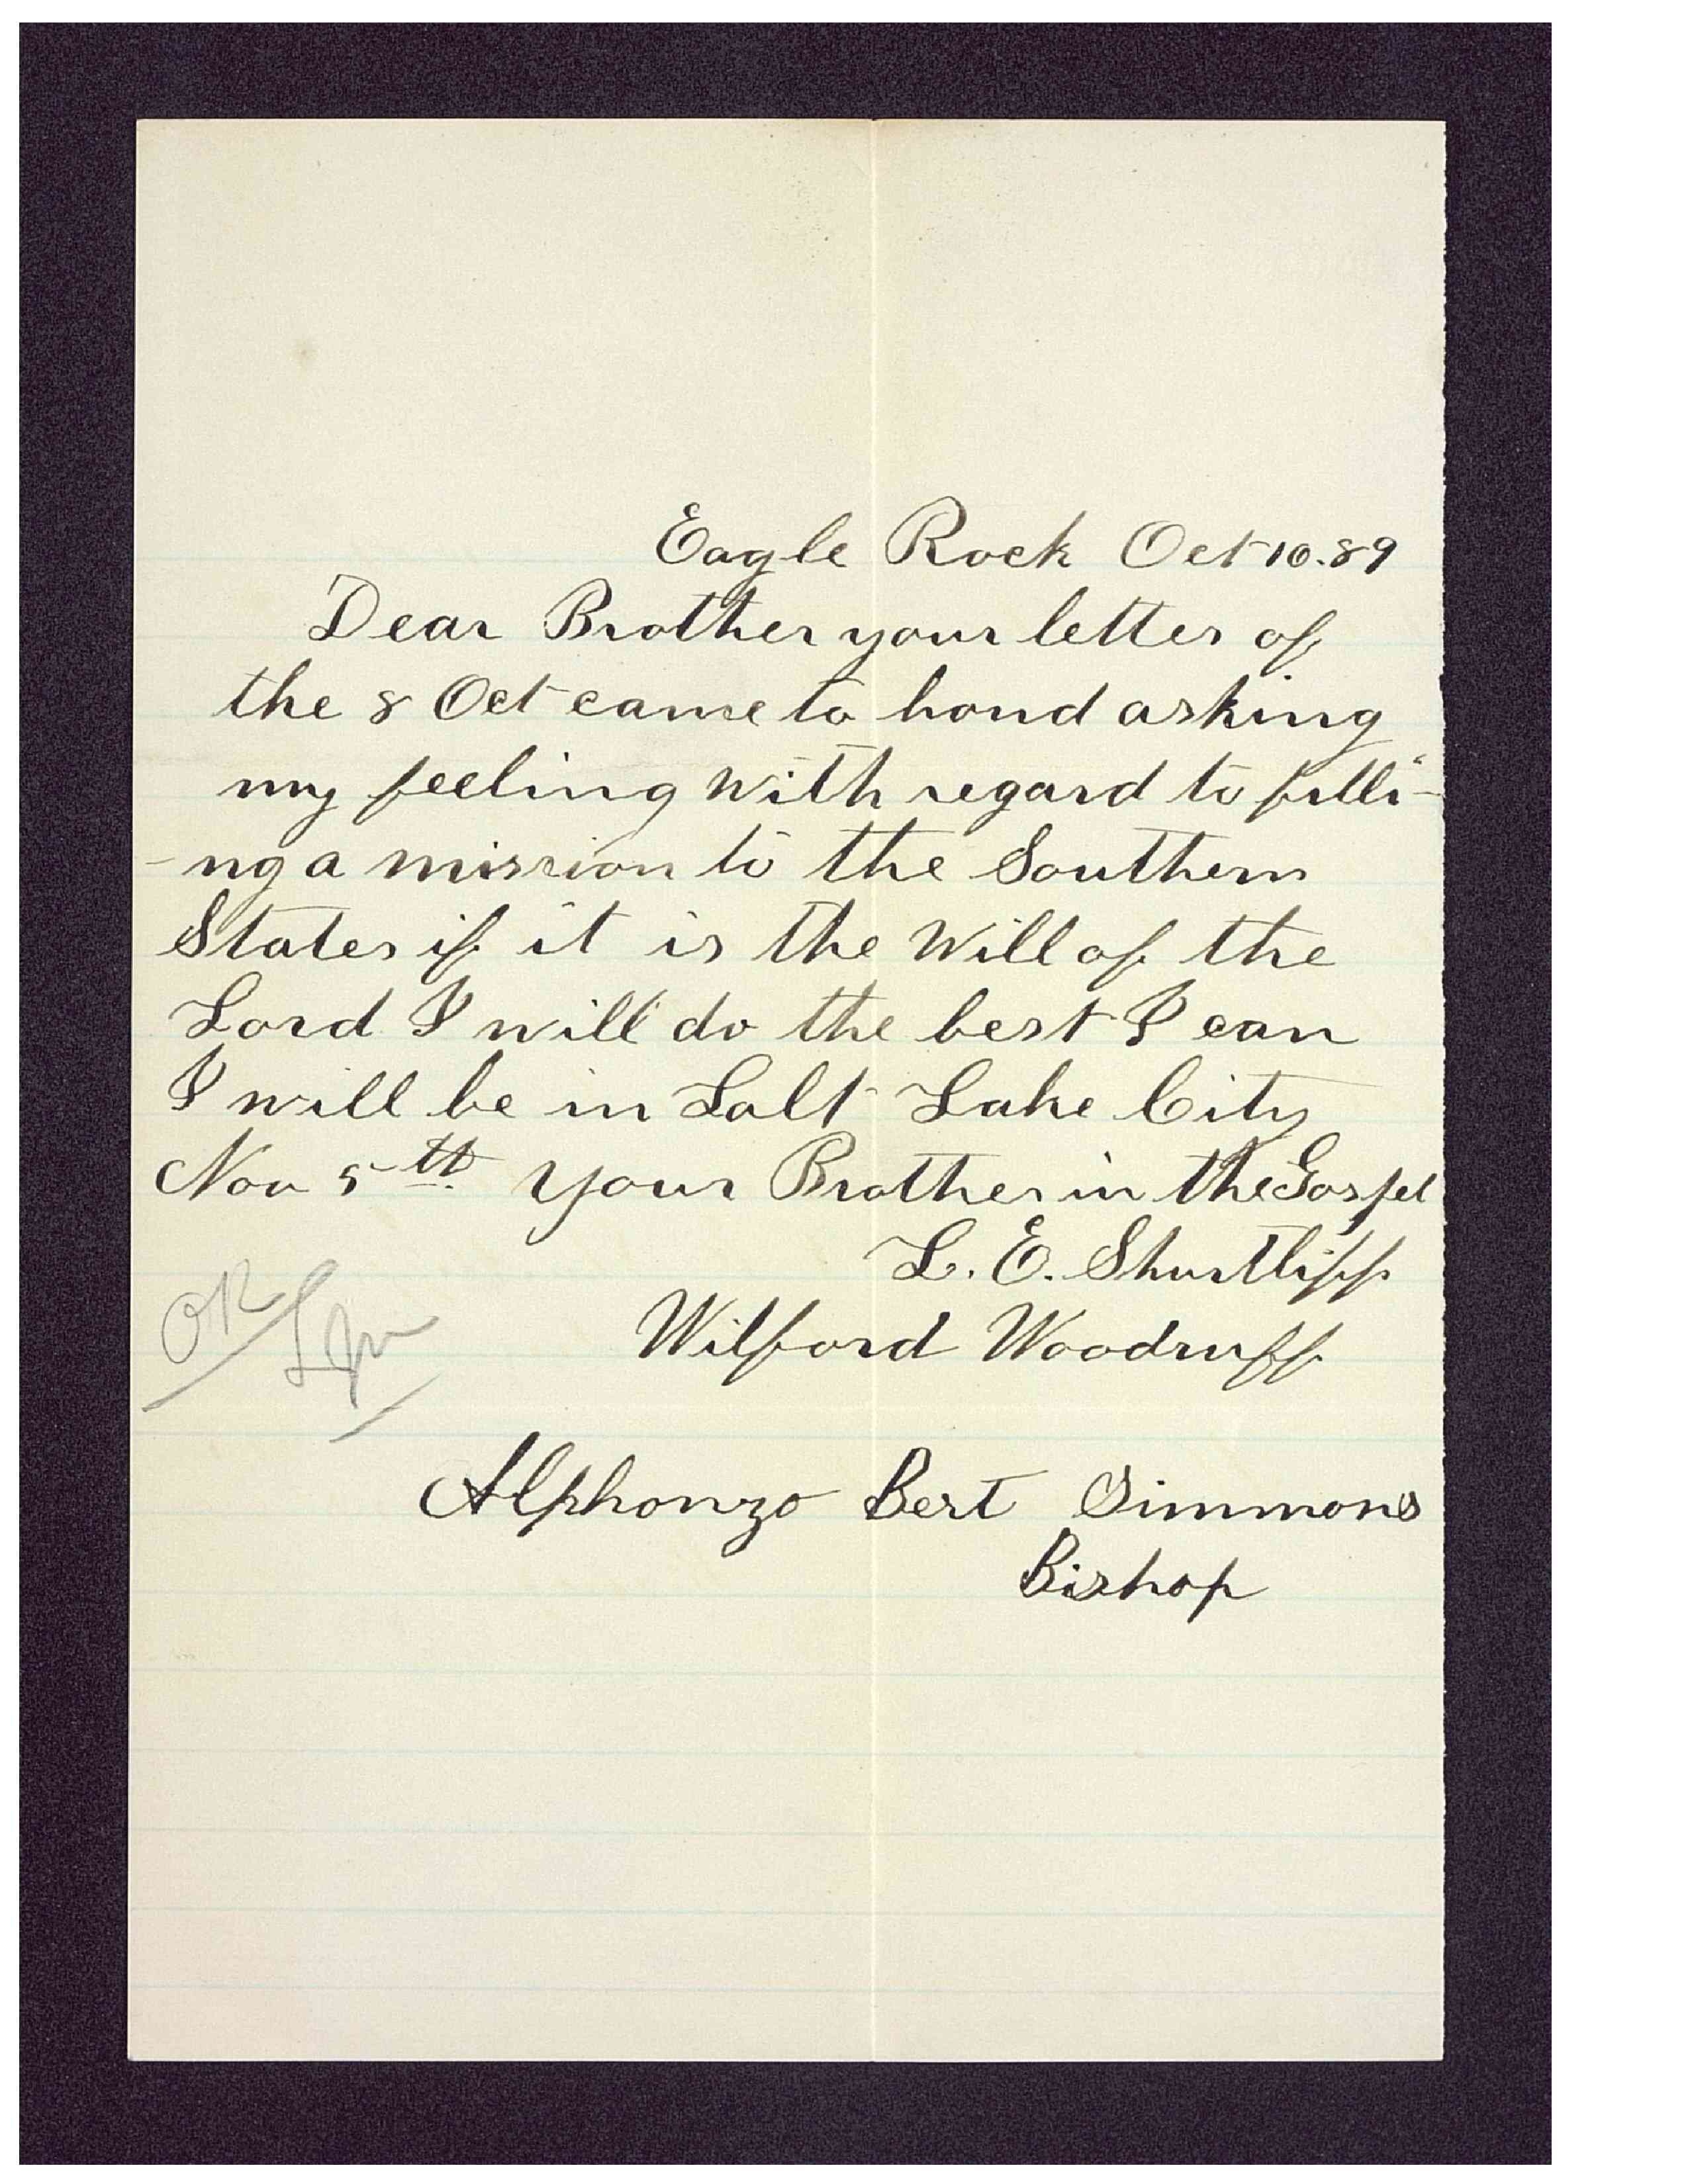 Eagle Rock Oct 10.89
Dear Brother your letter of
the 8 Oct came to hand asking
my feeling with regard to filli-
-ng a mission to the Southern
States if it is the Will of the
Lord I will do the best I can
I will be in Salt Lake City
Nov 5th. your Brother in the Gospel
L. E. Shurtliff
Wilford Woodruff
OK
Alphonzo Bert Simmons
Bishop